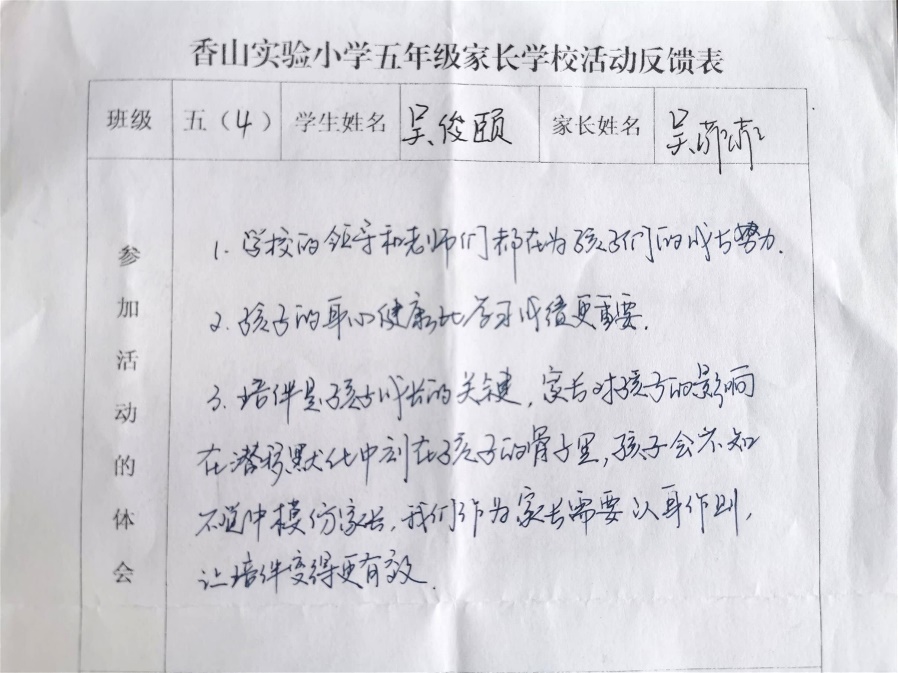 香山实验小学五年级家长学校活动反馈表
班级 五（4） 学生姓名 吴俊颐 家长姓名 吴
参加活动的体会
1. 学校的领导和老师们都在为孩子们的成长努力.
2. 孩子的身心健康比学习成绩更重要.
3. 培伴是孩子成长的关键，家长对孩子的影响
在潜移默化中刻在孩子的骨子里，孩子会不知
不道中模仿家长，我们作为家长需要以身作则，
让培伴变得更有效.